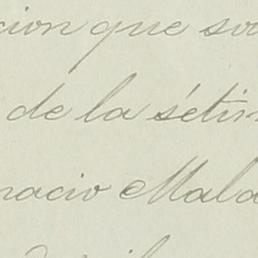 cion que so
de la sétim
nacio Mala